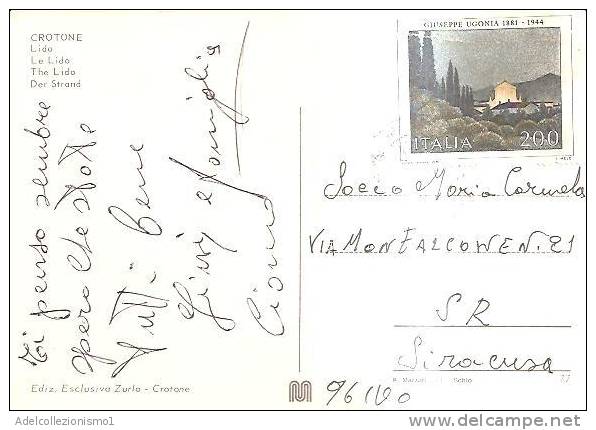 CROTONE
Lido
Le Lido
The Lido
Der Strand
GIUSEPPE UGONIA 1881 - 1944
ITALIA 200
penso sempre
spero che state
tutti bene
Giusi e famiglia
Ciao
Maria Carmela
VIA MONFALCONE N. 21
SR
Siracusa
96100
Ediz. Esclusiva Zurlo - Crotone
M
Adelcollezionismo1
www.delcampe.net